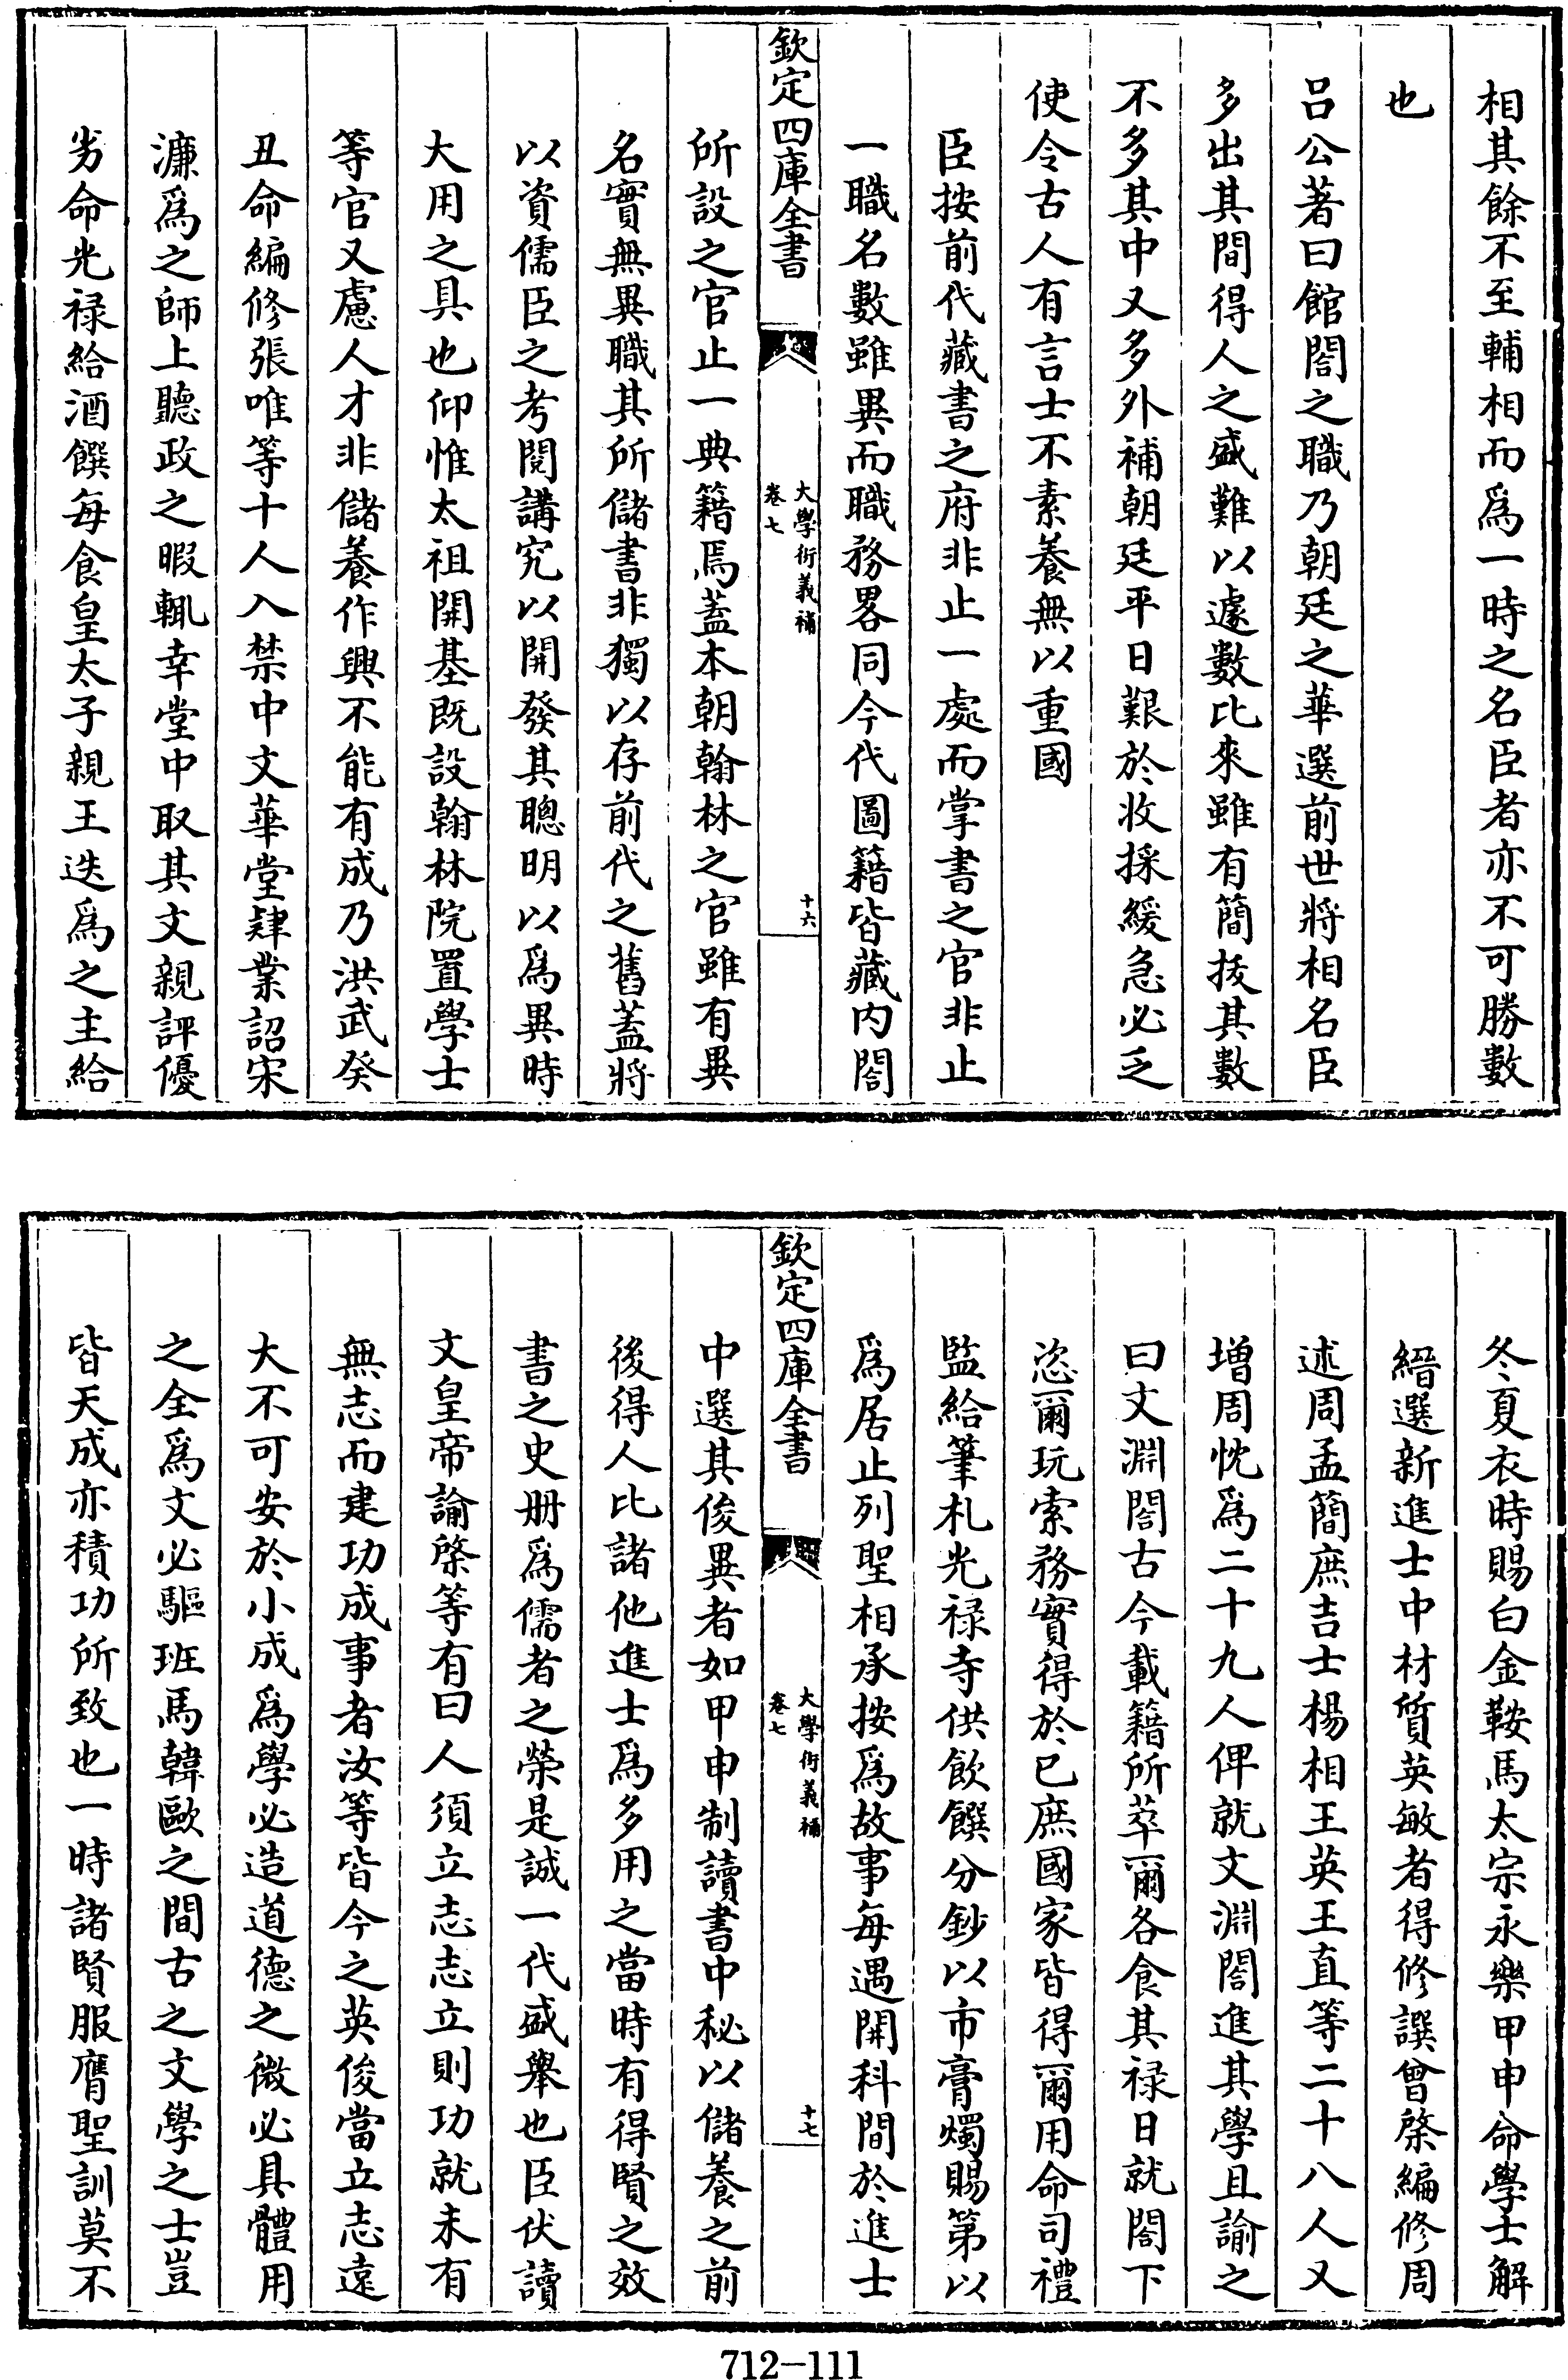 相其餘不至輔相而爲一時之名臣者亦不可勝數
也
呂公著曰館閣之職乃朝廷之華選前世將相名臣
多出其間得人之盛難以遽數比來雖有簡拔其數
不多其中又多外補朝廷平日艱於收採緩急必乏
使令古人有言士不素養無以重國
臣按前代藏書之府非止一處而掌書之官非止
一職名數雖異而職務畧同今代圖籍皆藏内閣
欽定四庫全書
大學衍義補
卷七
十六
所設之官止一典籍焉蓋本朝翰林之官雖有異
名實無異職其所儲書非獨以存前代之舊蓋將
以資儒臣之考閱講究以開發其聰明以爲異時
大用之具也仰惟太祖開基既設翰林院置學士
等官又慮人才非儲養作興不能有成乃洪武癸
丑命編修張唯等十人入禁中文華堂肄業詔宋
濂爲之師上聽政之暇輒幸堂中取其文親評優
劣命光禄給酒饌每食皇太子親王迭爲之主給
冬夏衣時賜白金鞍馬太宗永樂甲申命學士解
縉選新進士中材質英敏者得修譔曾棨編修周
述周孟簡庶吉士楊相王英王直等二十八人又
增周忱爲二十九人俾就文淵閣進其學且諭之
曰文淵閣古今載籍所萃爾各食其禄日就閣下
恣爾玩索務實得於已庶國家皆得爾用命司禮
監給筆札光禄寺供飲饌分鈔以市膏燭賜第以
爲居止列聖相承按爲故事每遇開科間於進士
欽定四庫全書
大學衍義補
卷七
十七
中選其俊異者如甲申制讀書中秘以儲養之前
後得人比諸他進士爲多用之當時有得賢之效
書之史册爲儒者之榮是誠一代盛舉也臣伏讀
文皇帝諭棨等有曰人須立志志立則功就未有
無志而建功成事者汝等皆今之英俊當立志遠
大不可安於小成爲學必造道德之微必具體用
之全爲文必驅班馬韓歐之間古之文學之士豈
皆天成亦積功所致也一時諸賢服膺聖訓莫不
712-111